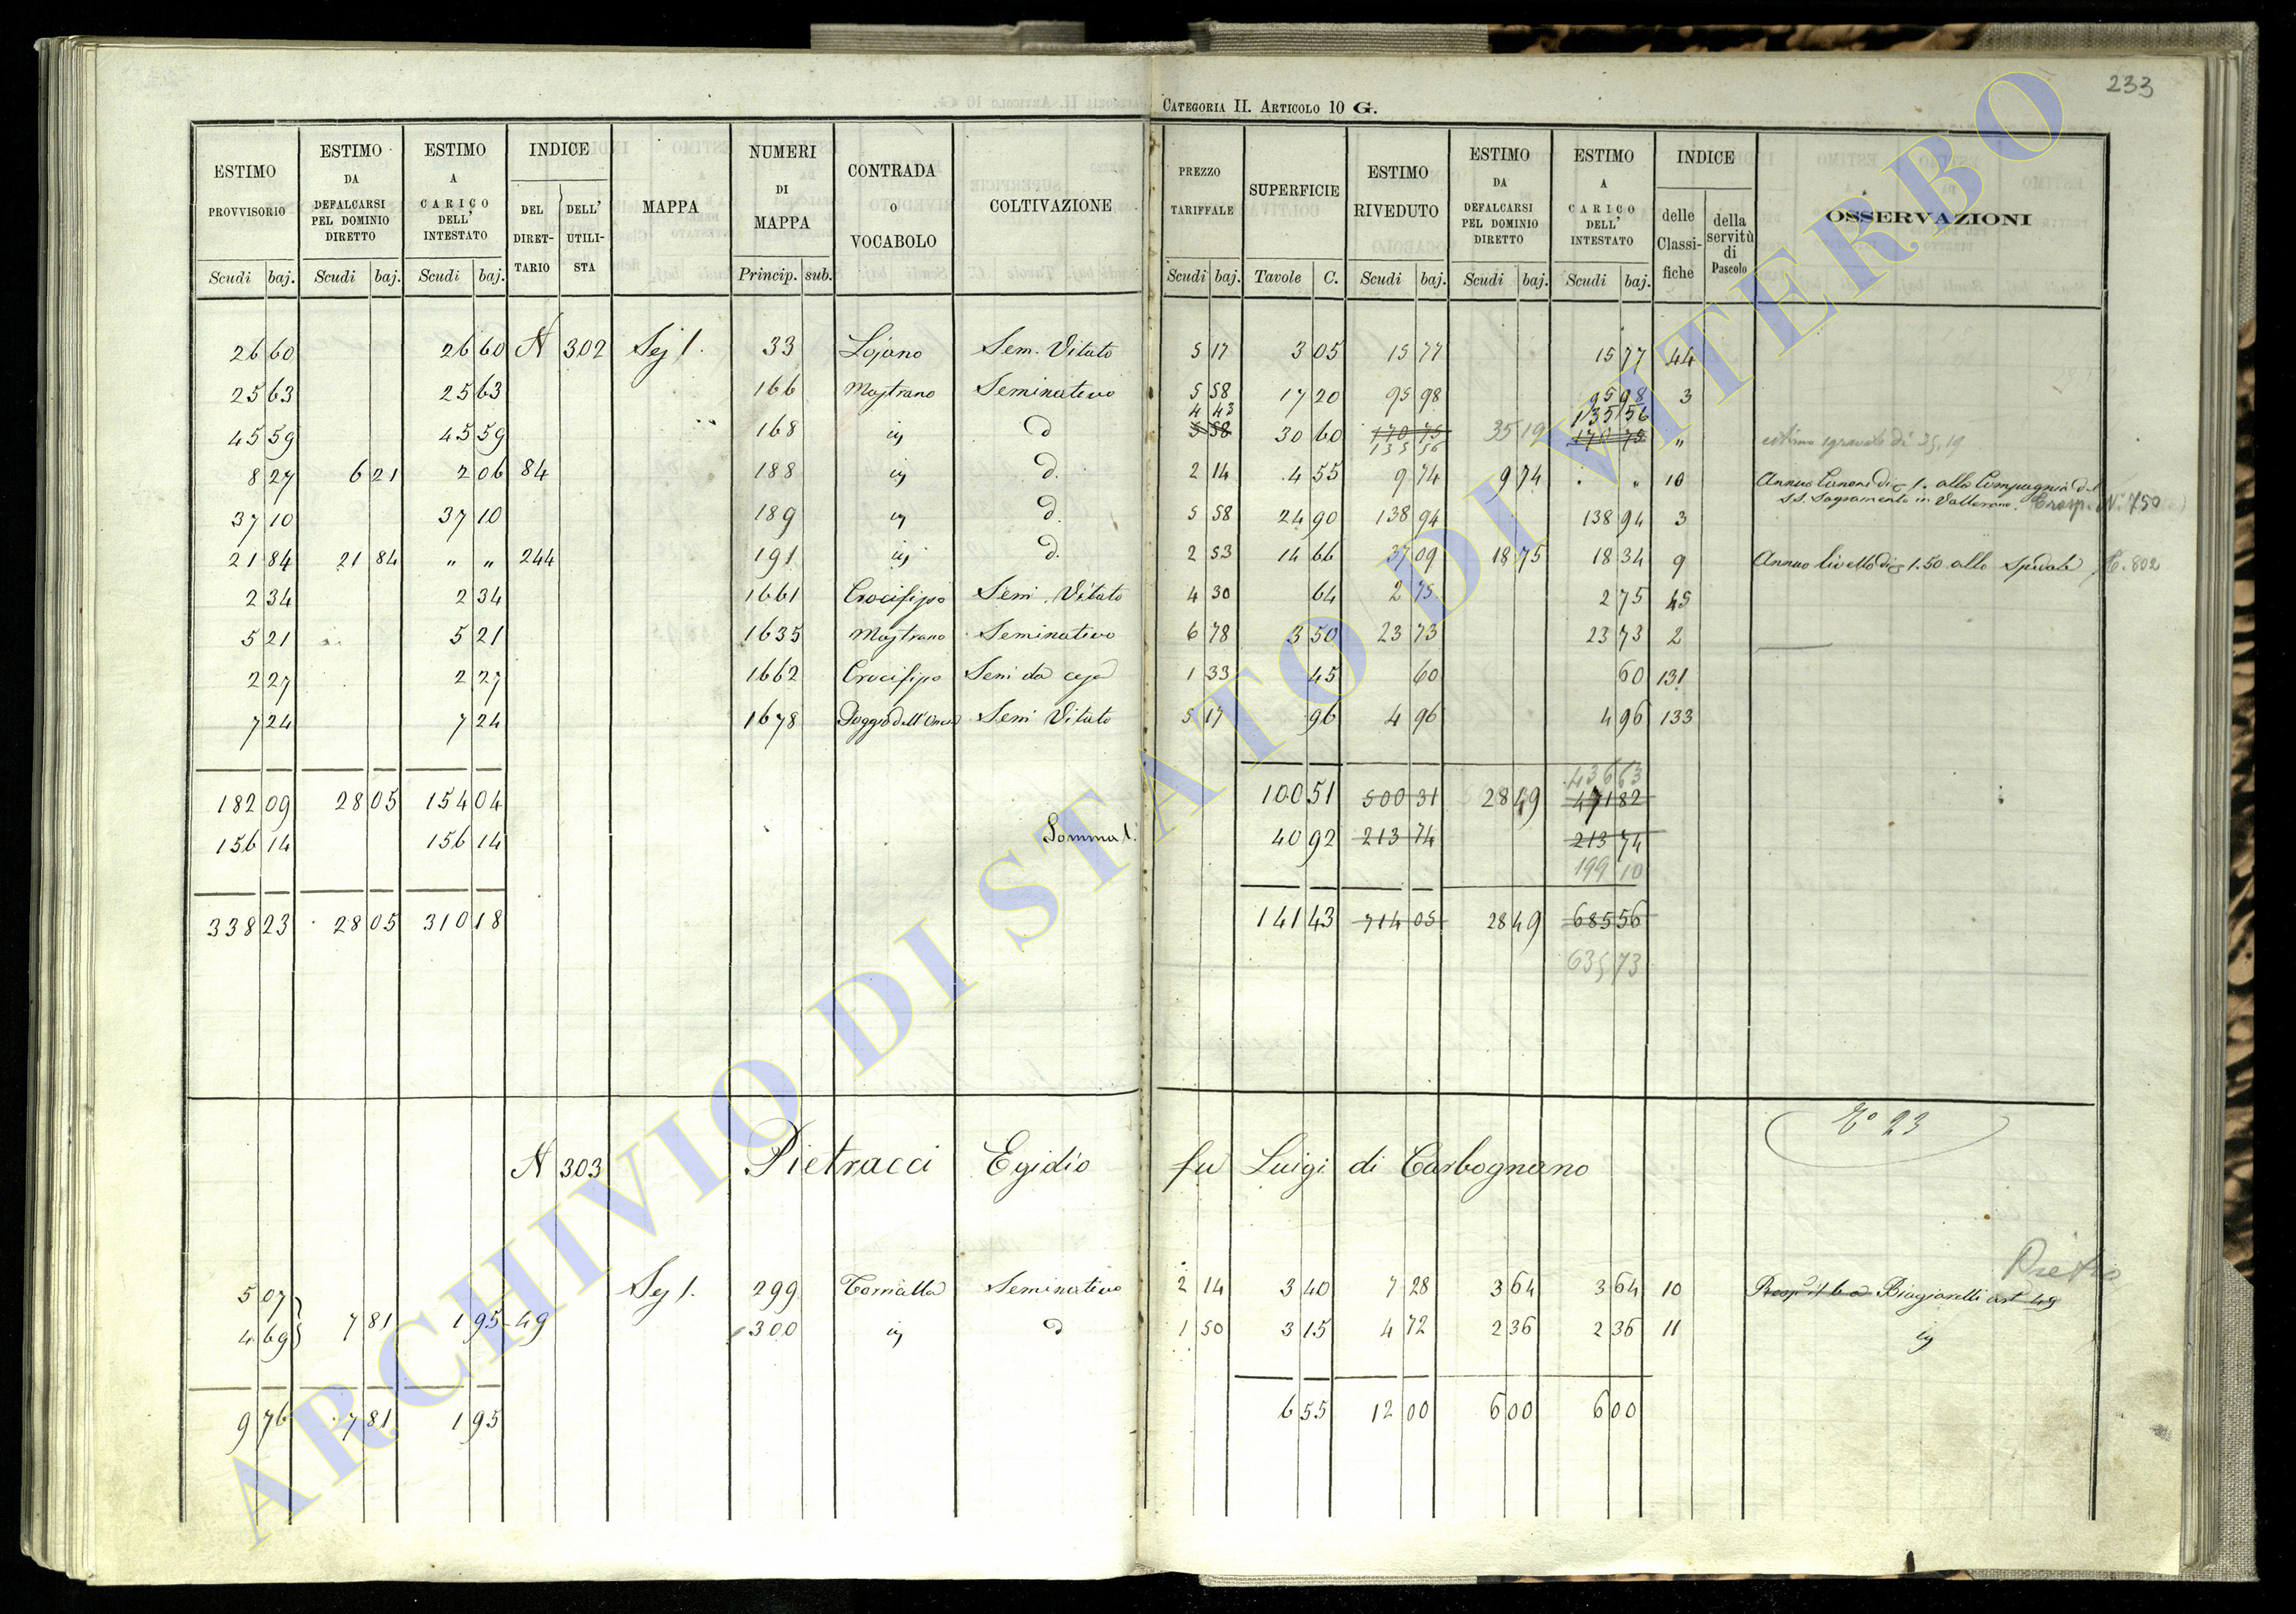 233
CATEGORIA II. ARTICOLO 10 G.
ESTIMO PROVVISORIO Scudi baj.
ESTIMO DA DEFALCARSI PEL DOMINIO DIRETTO Scudi baj.
ESTIMO A CARICO DELL' INTESTATO Scudi baj.
INDICE DEL DIRET-TARIO DELL' UTILI-STA
MAPPA
NUMERI DI MAPPA Princip. sub.
CONTRADA O VOCABOLO
COLTIVAZIONE
PREZZO TARIFFALE Scudi baj.
SUPERFICIE Tavole C.
ESTIMO RIVEDUTO Scudi baj.
ESTIMO DA DEFALCARSI PEL DOMINIO DIRETTO Scudi baj.
ESTIMO A CARICO DELL' INTESTATO Scudi baj.
INDICE delle Classi-fiche della servitù di Pascolo
OSSERVAZIONI
26 60 26 60 N 302 Sez 1. 33 Lojano Sem. Vitato 5 17 3 05 15 77 15 77 44
25 63 25 63 166 Mastrano Seminativo 5 58 17 20 95 98 95 98 3
4 43 135 56
45 59 45 59 168 id d 5 58 30 60 170 75 35 19 170 75 " estimo sgravato di 35,19
135 56
8 27 6 21 2 06 84 188 id d. 2 14 4 55 9 74 9 74 . " 10 Annuo Canone di 1. alla Compagnia del
SS. Sagramento in Vallerano. Trasp. N° 750
37 10 37 10 189 id d. 5 58 24 90 138 94 138 94 3
21 84 21 84 " " 244 191 id d. 2 53 14 66 37 09 18 75 18 34 9 Annuo livello di 1.50 allo Spedale 802
2 34 2 34 1661 Crocifisso Sem. Vitato 4 30 64 2 75 2 75 45
5 21 5 21 1635 Mastrano Seminativo 6 78 3 50 23 73 23 73 2
2 27 2 27 1662 Crocifisso Sem da 1 33 45 60 60 131
7 24 7 24 1678 Poggio dell' Sem Vitato 5 17 96 4 96 4 96 133
436 63
182 09 28 05 154 04 100 51 500 31 28 49 471 82
156 14 156 14 Somma 1. 40 92 213 74 213 74
199 10
338 23 28 05 310 18 141 43 714 05 28 49 685 56
635 73
N° 23
N 303 Pietracci Egidio fu Luigi di Carbognano
Pietro
5 07 Sez 1. 299 Seminativo 2 14 3 40 7 28 3 64 3 64 10 Biagiarelli art 49
4 69 7 81 1 95 49 300 id d 1 50 3 15 4 72 2 36 2 36 11 id
9 76 7 81 1 95 6 55 12 00 6 00 6 00
ARCHIVIO DI STATO DI VITERBO